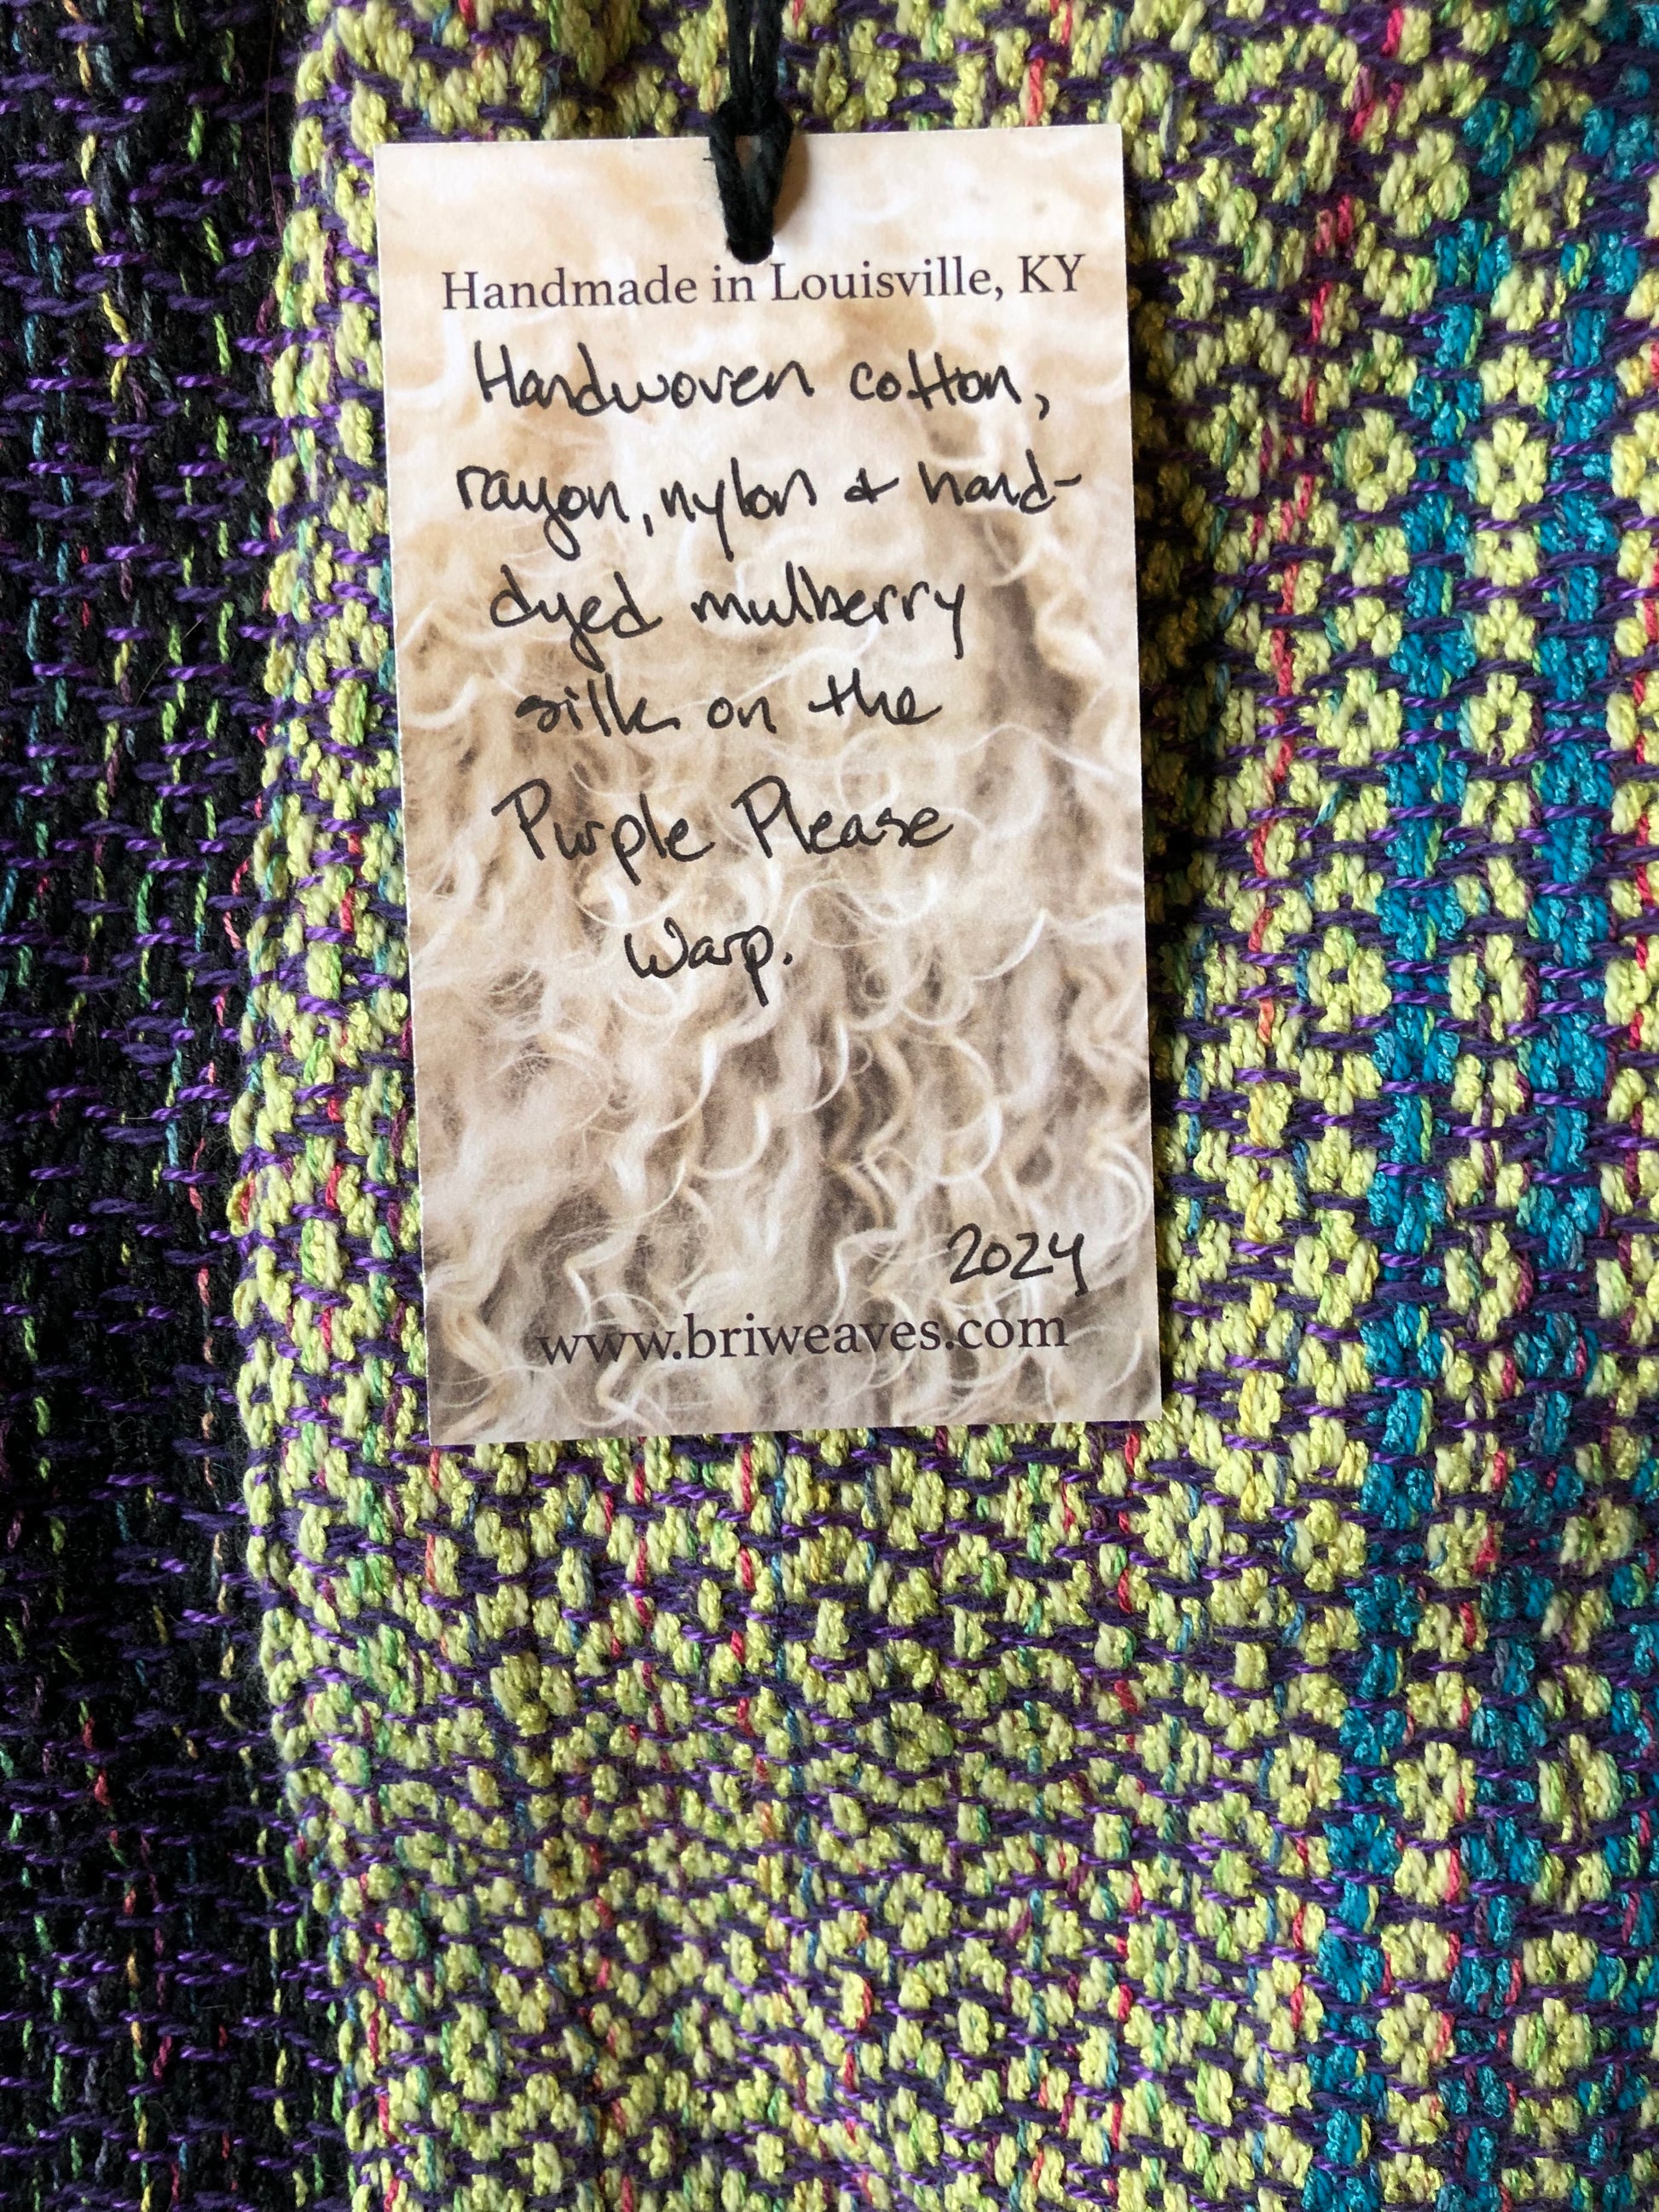 Handmade in Louisville, KY
Handwoven cotton,
rayon, nylon & hand-
dyed mulberry
silk on the
Purple Please
Warp.
2024
www.briweaves.com